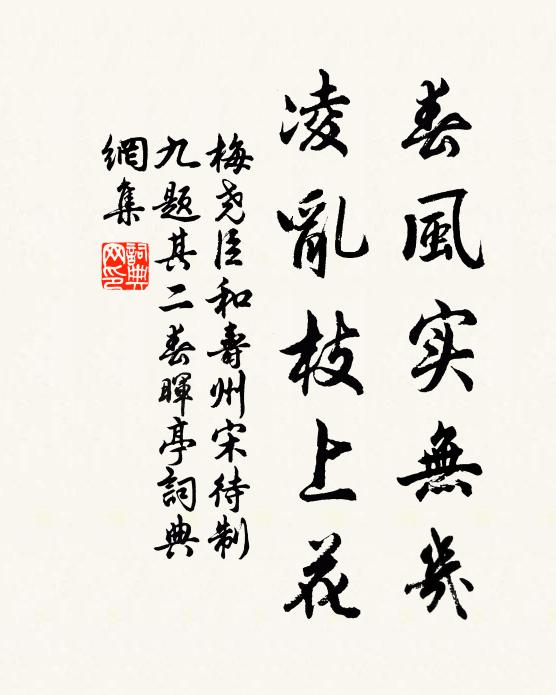 春風实無幾
凌亂枝上花
梅堯臣和壽州宋待制
九题其二春暉亭詞典
網集
詞典
网印